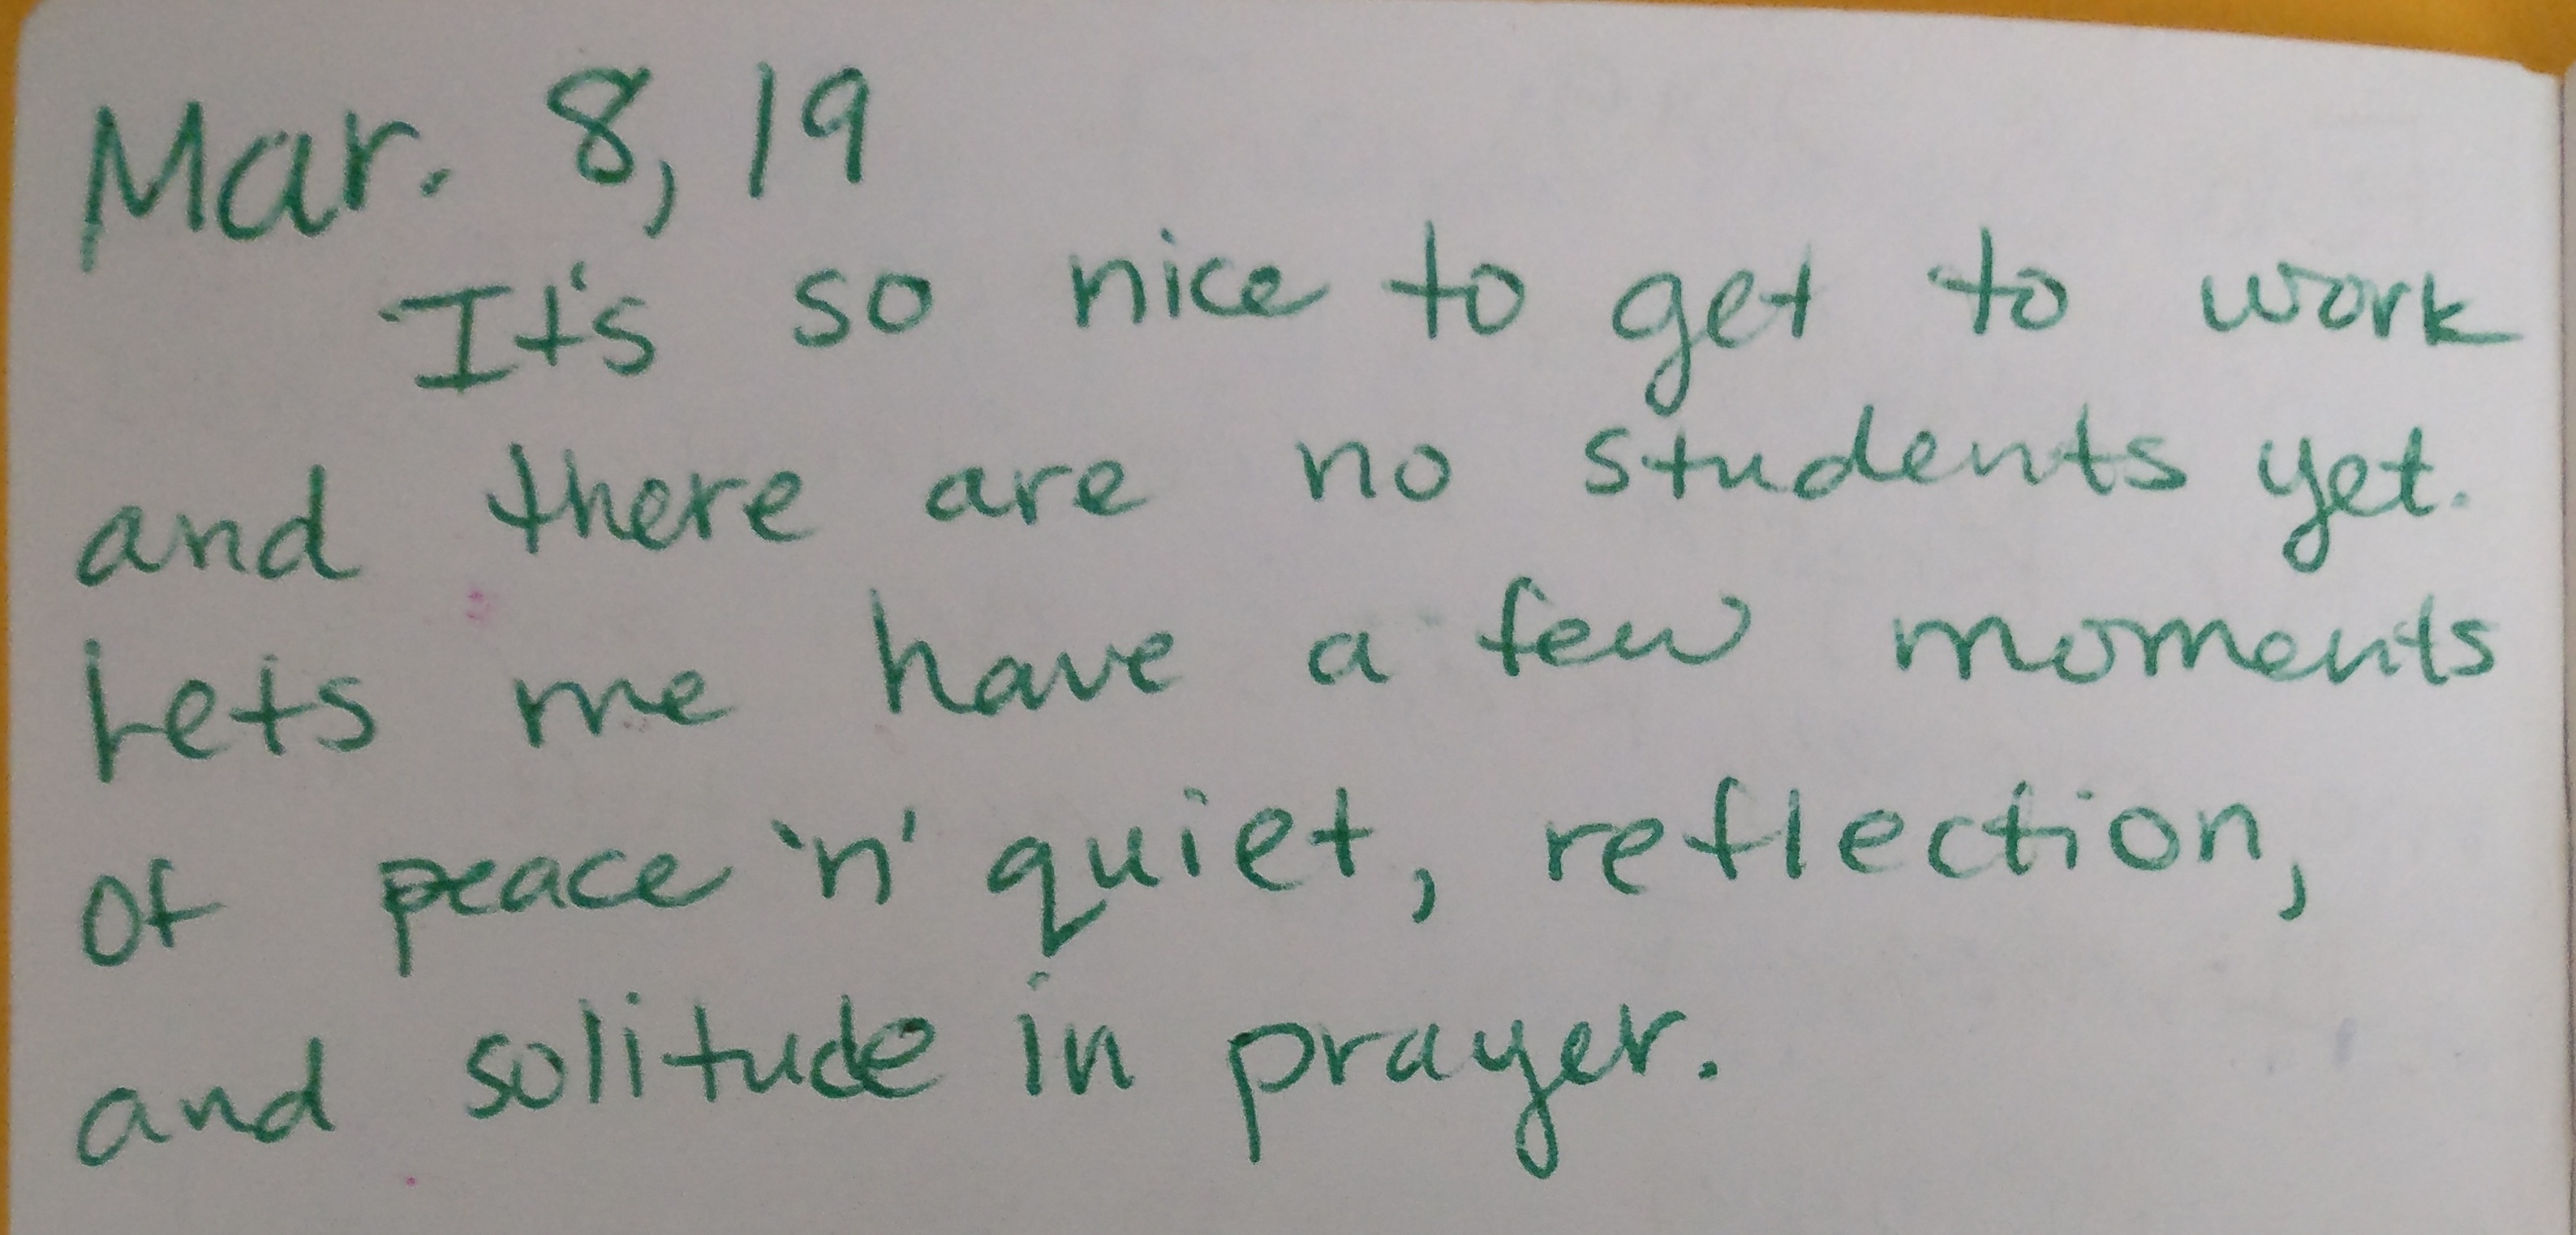 Mar. 8, 19
It's so nice to get to work
and there are no students yet.
Lets me have a few moments
of peace 'n' quiet, reflection,
and solitude in prayer.